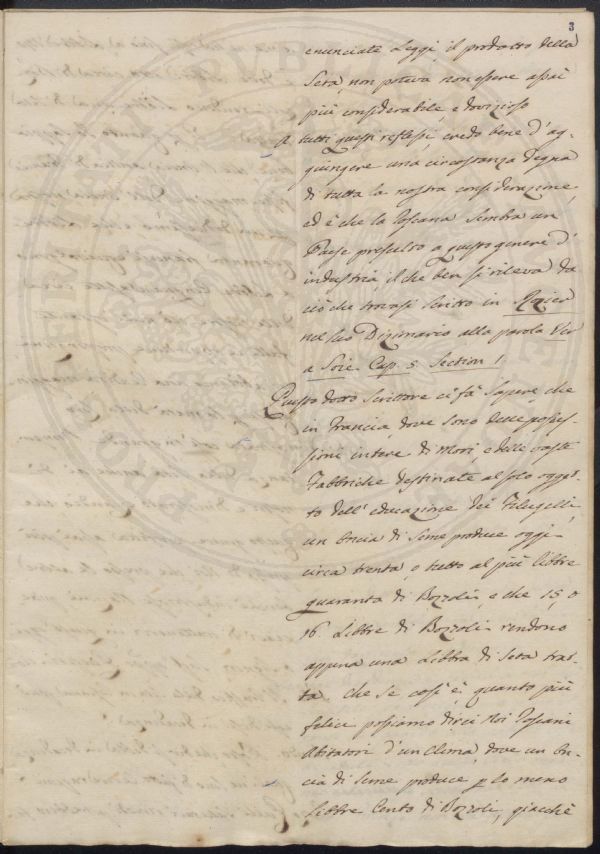 3
enunciate Leggi, il prodotto della
Seta, non poteva non essere assai
più considerabile, e dovizioso
A tutti questi reflessi, credo bene d'ag-
giungere una circostanza degna
di tutta la nostra considerazione,
ed è che la Toscana sembra un
Paese prescelto a questo genere d'
industria, il che ben si rileva da
ciò che trovasi scritto in Rozier
nel suo Dizionario alla parola Ver
a Soie Cap. 5. Section 1.
Questo dotto Scrittore ci fà sapere che
in Francia, dove sono delle posses-
sioni intere di Mori e delle vaste
Fabbriche destinate al solo ogget-
to dell'educazione dei Filugelli,
un'Oncia di Seme produce oggi
circa trenta, o tutto al più libbre
quaranta di Bozzoli, e che 15, o
16. Libbre di Bozzoli rendono
appena una Libbra di Seta trat-
ta. Che se così è, quanto più
felici possiamo dirci Noi Toscani
Abitatori d'un Clima, dove un'On-
cia di Seme produce p lo meno
Libbre Cento di Bozzoli, giacchè